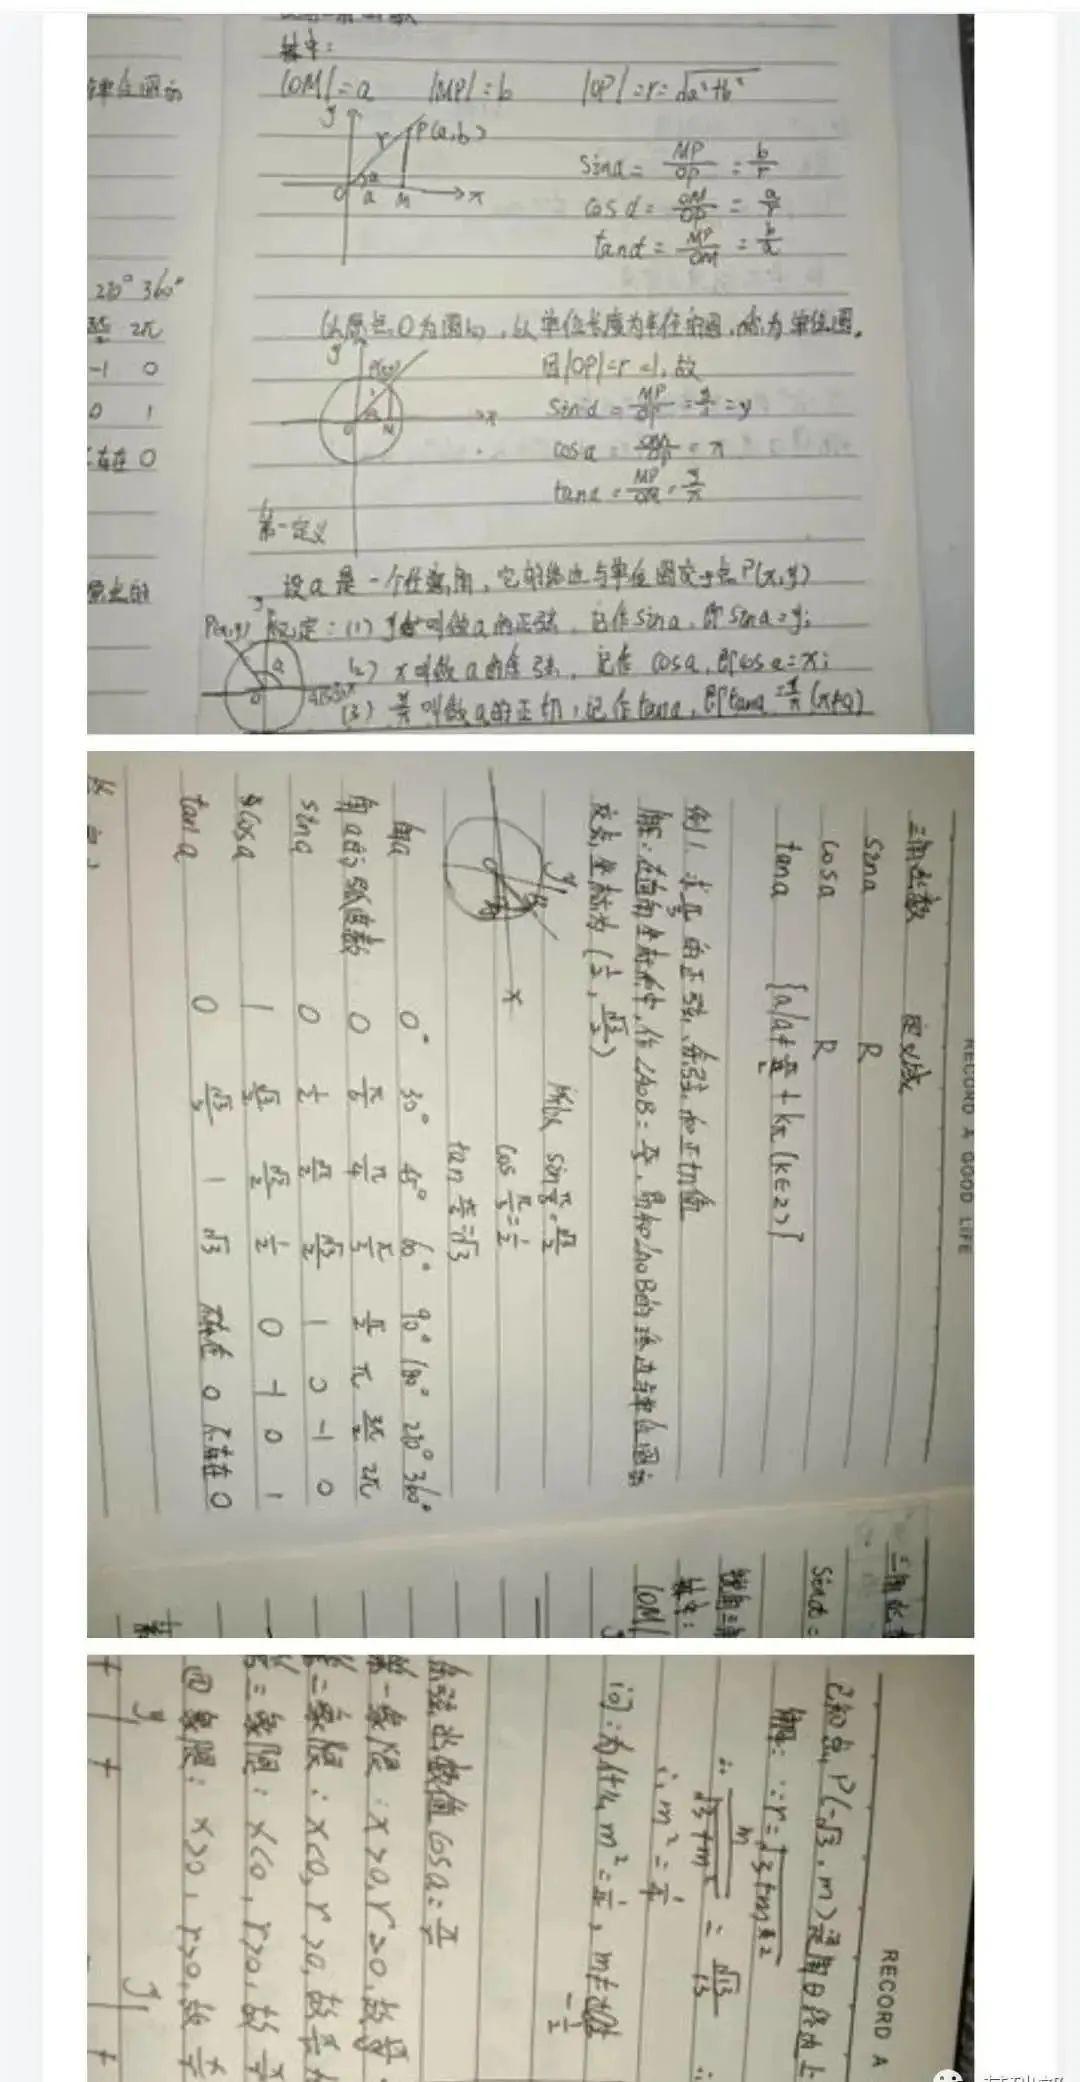 其中:
|OM|=a |MP|=b |OP|=r=√a²+b²
y
P(a,b)
r
a
O a M x
sina= MP/OP = b/r
cosα= OM/OP = a/r
tanα= MP/OM = b/a
单位圆的
270° 360°
3π/2 2π
-1 0
0 1
不存在 0
以原点O为圆心,以单位长度为半径的圆,称为单位圆.
y
因|OP|=r=1,故
sinα= MP/OP = y/1 = y
O M x
cosa= OM/OP = x
tana= MP/OM = y/x
第一定义
设a是一个任意角,它的终边与单位圆交于点P(x,y)
P(x,y) 规定:(1) y叫做a的正弦,记作sina,即sina=y;
(2) x叫做a的余弦,记作cosa,即cosa=x;
(3) y/x叫做a的正切,记作tana,即tana=y/x(x≠0)
RECORD A GOOD LIFE
三角函数 定义域
sina R
cosa R
tana {a|a≠π/2+kπ(k∈Z)}
例1.求π/3的正弦、余弦和正切值
解:在直角坐标系中,作∠AOB=π/3,易知∠AOB的终边与单位圆的
交点坐标为(1/2,√3/2)
所以 sinπ/3=√3/2
cosπ/3=1/2
tanπ/3=√3
y
O
x
角a 0° 30° 45° 60° 90° 180° 270° 360°
角a的弧度数 0 π/6 π/4 π/3 π/2 π 3π/2 2π
sina 0 1/2 √2/2 √3/2 1 0 -1 0
cosa 1 √3/2 √2/2 1/2 0 -1 0 1
tana 0 √3/3 1 √3 不存在 0 不存在 0
三角函
sinα=
锐角三角
其中:
|OM|
RECORD A
已知点P(-√3,m)是角θ终边上
解:∵r=√3+m²
∴ m/√3+m² = √13/13 ∴
∴m²=1/4
问:为什么m²=1/4,m≠
-1/2
余弦函数值cosa=x/r
第一象限:x>0,r>0,故
第二象限:x<0,r>0,故x/r
第三象限:x<0,r>0,故x/r
四象限:x>0,r>0,故x/r
y
y
+ +
+